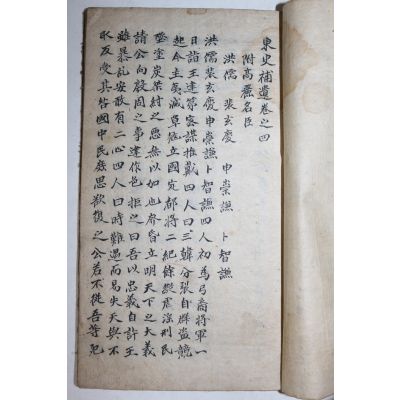 東史補遺卷之四
附高麗名臣
洪儒　裴玄慶　申崇謙　卜智謙
洪儒裴玄慶申崇謙卜智謙四人初爲弓裔將軍一
日詣王建第密謀推戴四人曰三韓分裂自群盜競
起今主奮威草莽立國定都將二紀餘縱虐淫刑民
墜塗炭桀紂之惡無以加也廢昏立明天下之大義
請公向殷周之事建作色拒之曰吾以忠義自許王
雖暴乱安敢有二心四人曰時難遇而易失天與不
取反受其咎國中民庶思欲復之公若不從吾等死